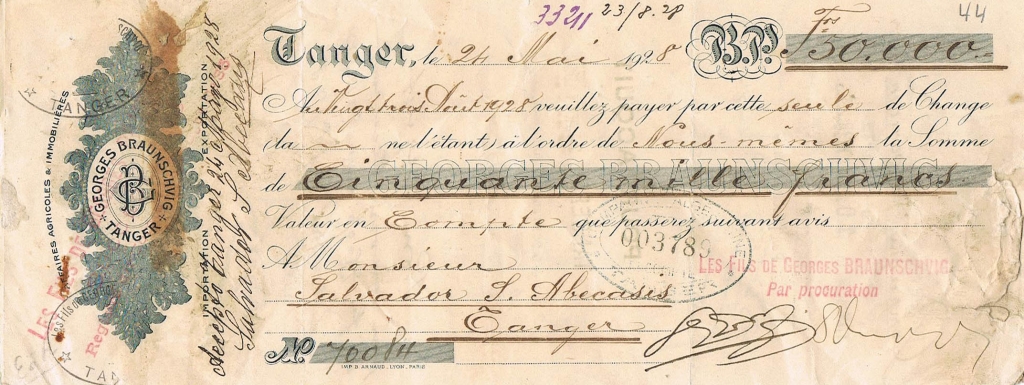 3321 23/8.28
44
Tanger, le 24 Mai 1928 B.P. Frs 50.000.-
Au Vingt trois Août 1928 veuillez payer par cette seule de Change
(la ~ ne l'étant) à l'ordre de Nous-mêmes la Somme
GEORGES BRAUNSCHVIG
de Cinquante mille francs
Valeur en Compte que passerez suivant avis
003789
A Monsieur
LES FILS DE GEORGES BRAUNSCHVIG
Par procuration
Salvador S. Abecasis
Tanger
No 70084
IMP. B. ARNAUD, LYON, PARIS
AFFAIRES AGRICOLES & IMMOBILIÈRES
IMPORTATION EXPORTATION
GEORGES BRAUNSCHVIG
GB
TANGER
TANGER
Accepto Tanger 24 1928
Salvador S. Abecasis
LES FILS DE